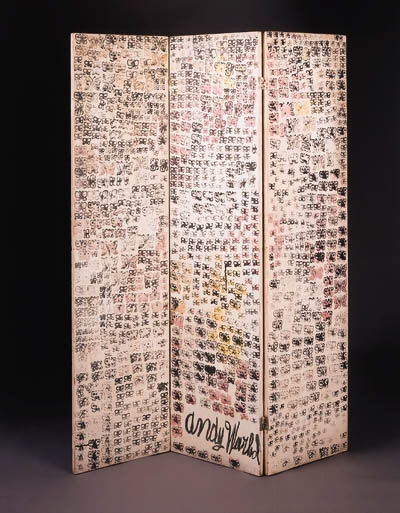 andy Warhol